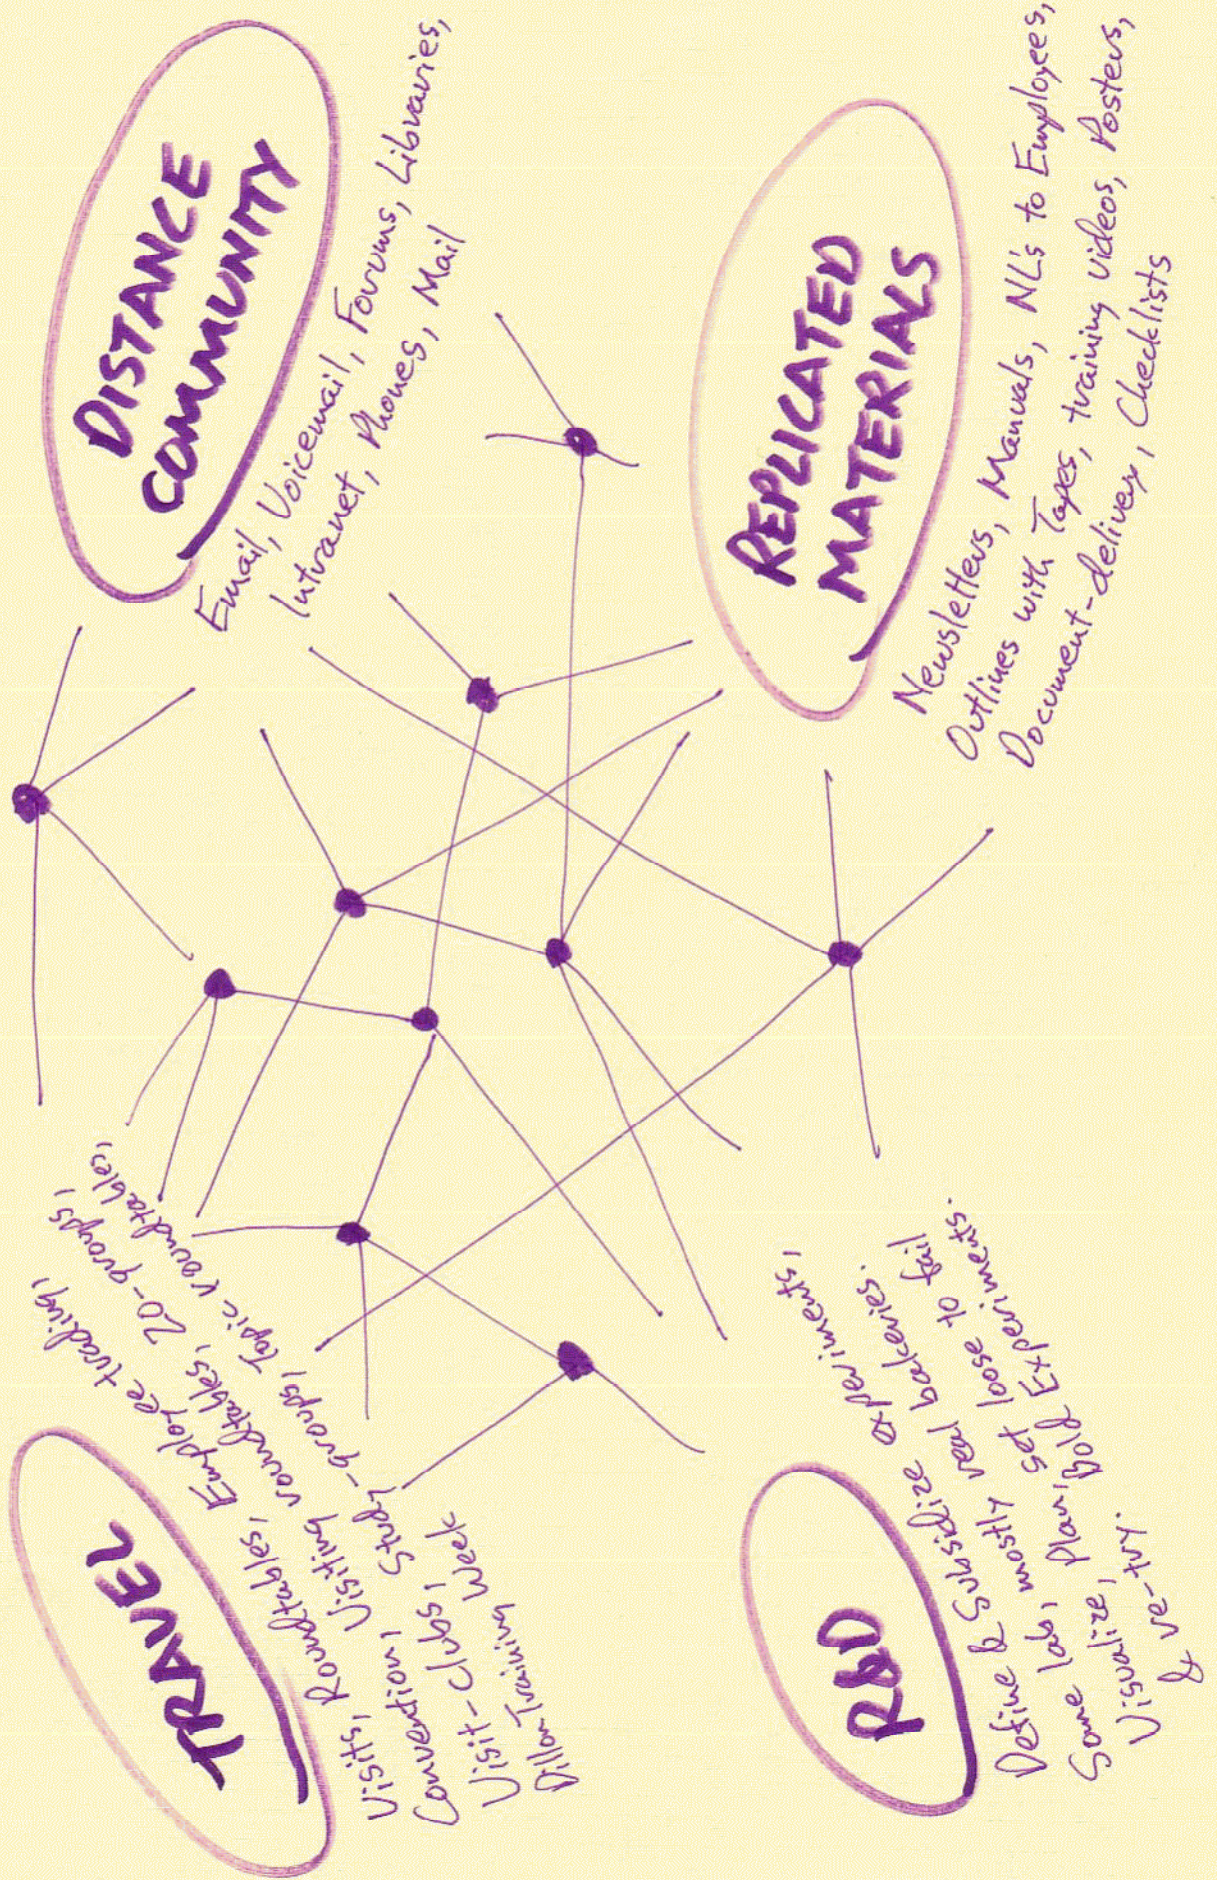 TRAVEL
Visits, Roundtables, Employee trading,
Convention, Visiting roundtables, 20-groups,
Visit-clubs, Study-groups, Topic roundtables,
Dillon Training Week
DISTANCE
COMMUNITY
Email, Voicemail, Forums, Libraries,
Intranet, Phones, Mail
R&D
Define & Subsidize experiments,
Some lab, mostly real bakeries.
Visualize, Plan, set loose to fail
& re-try. Bold Experiments.
REPLICATED
MATERIALS
Newsletters, Manuals, NL's to Employees,
Outlines with Tapes, training videos, Posters,
Document-delivery, Checklists